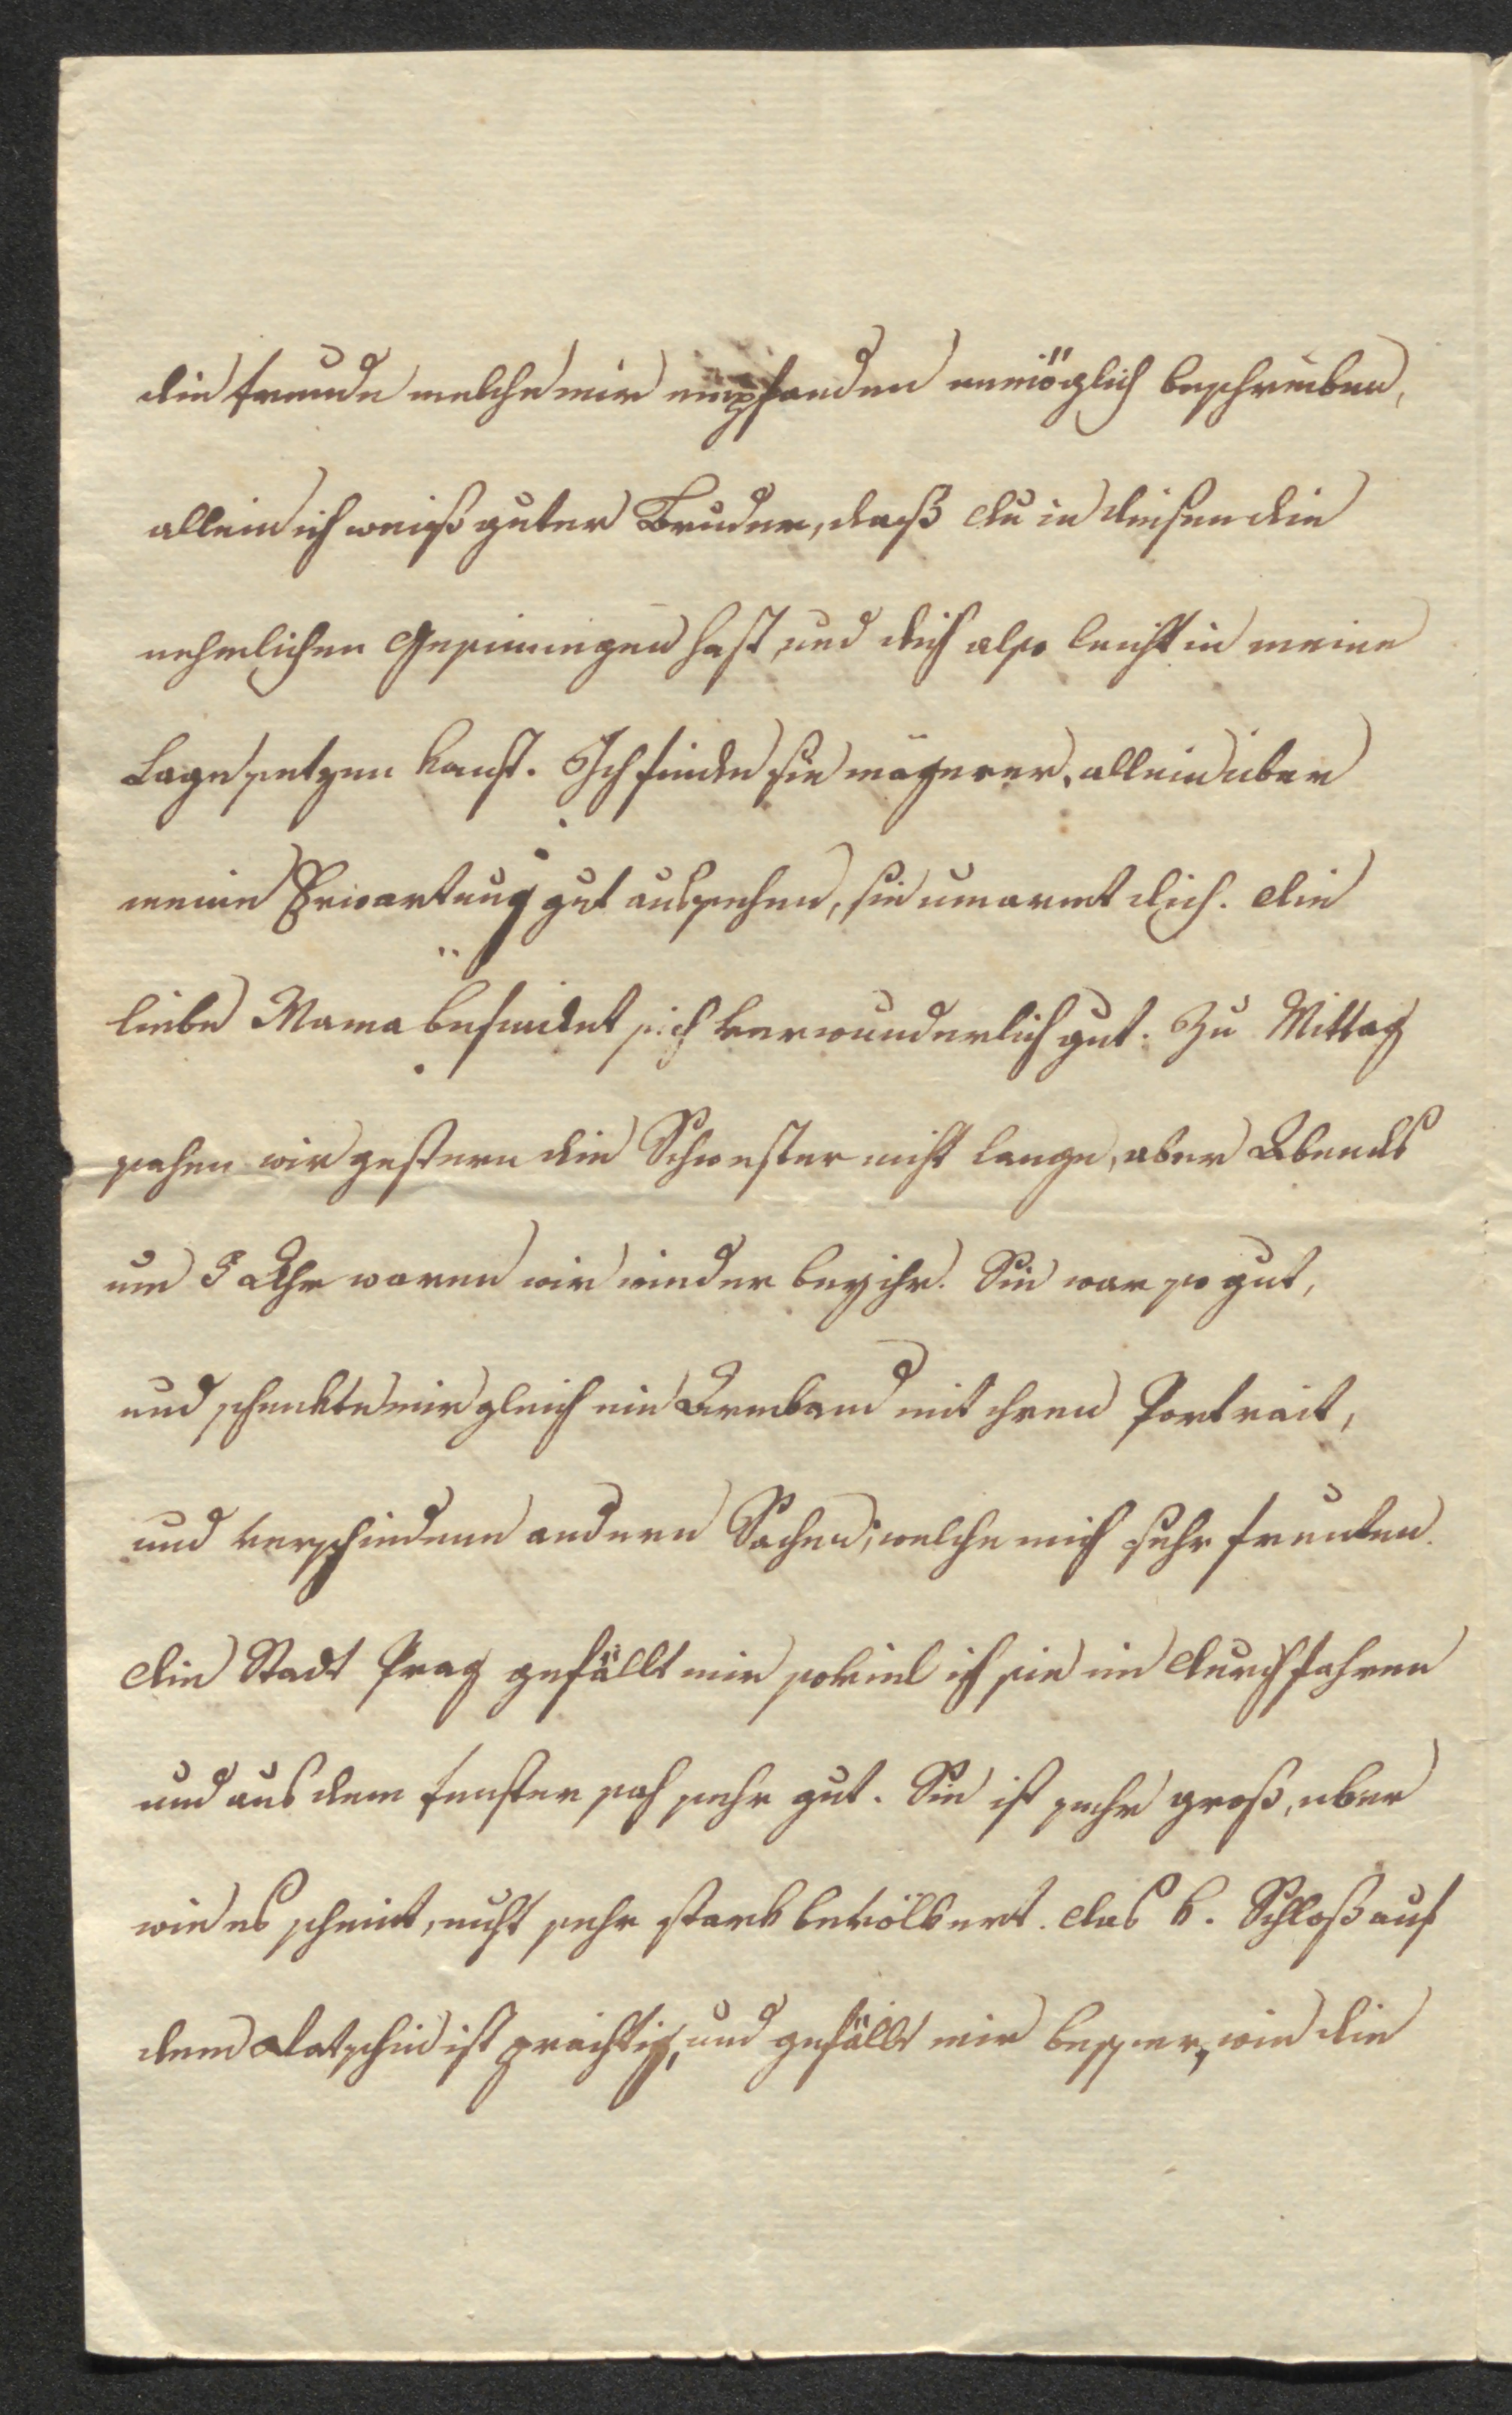 die Freude welche wir empfanden unmöglich beschreiben,
allein ich weiß guter Bruder, daß du in diesen die
nehmlichen Gesinnungen hast, und dich also leicht in meine
Lage setzen kanst. Ich finde sie mägerer, allein über
meine Erwartung gut aussehen, sie umarmt dich. die
liebe Mama befindet sich verwunderlich gut. Zu Mittag
sahen wir gestern die Schwester nicht lange, aber Abends
um 5 Uhr waren wir wieder bey ihr. Sie war so gut,
und schenkte mir gleich ein Armband mit ihren Portrait,
und verschiedene andere Sachen, welche mich sehr freuten.
die Stadt Prag gefällt mir soviel ich sie im durchfahren
und aus dem Fenster sah sehr gut. Sie ist sehr groß, aber
wie es scheint, nicht sehr stark bevölkert. das k. Schloß auf
dem Ratschin ist prächtig, und gefällt mir besser, wie die